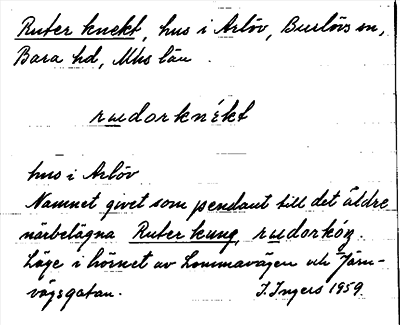 Ruter knekt, hus i Arlöv, Burlövs sn,
Bara hd, Mhs län.
rudorknékt
hus i Arlöv
Namnet givet som pendant till det äldre
närbelägna Ruter kung, rudorkóŋ.
Läge i hörnet av Lommavägen och Järn-
vägsgatan. I. Ingers 1959.